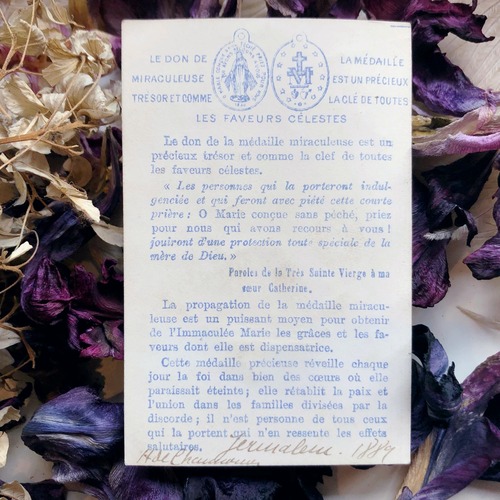 LE DON DE LA MÉDAILLE
MIRACULEUSE EST UN PRÉCIEUX
TRÉSOR ET COMME LA CLÉ DE TOUTES
LES FAVEURS CÉLESTES
Le don de la médaille miraculeuse est un
précieux trésor et comme la clef de toutes
les faveurs célestes.
« Les personnes qui la porteront indul-
genciée et qui feront avec piété cette courte
prière : O Marie conçue sans péché, priez
pour nous qui avons recours à vous !
jouiront d'une protection toute spéciale de la
mère de Dieu. »
Paroles de la Très Sainte Vierge à ma
sœur Catherine.
La propagation de la médaille miracu-
leuse est un puissant moyen pour obtenir
de l'Immaculée Marie les grâces et les fa-
veurs dont elle est dispensatrice.
Cette médaille précieuse réveille chaque
jour la foi dans bien des cœurs où elle
paraissait éteinte ; elle rétablit la paix et
l'union dans les familles divisées par la
discorde ; il n'est personne de tous ceux
qui la portent qui n'en ressente les effets
salutaires.
Jerusalem. 1889